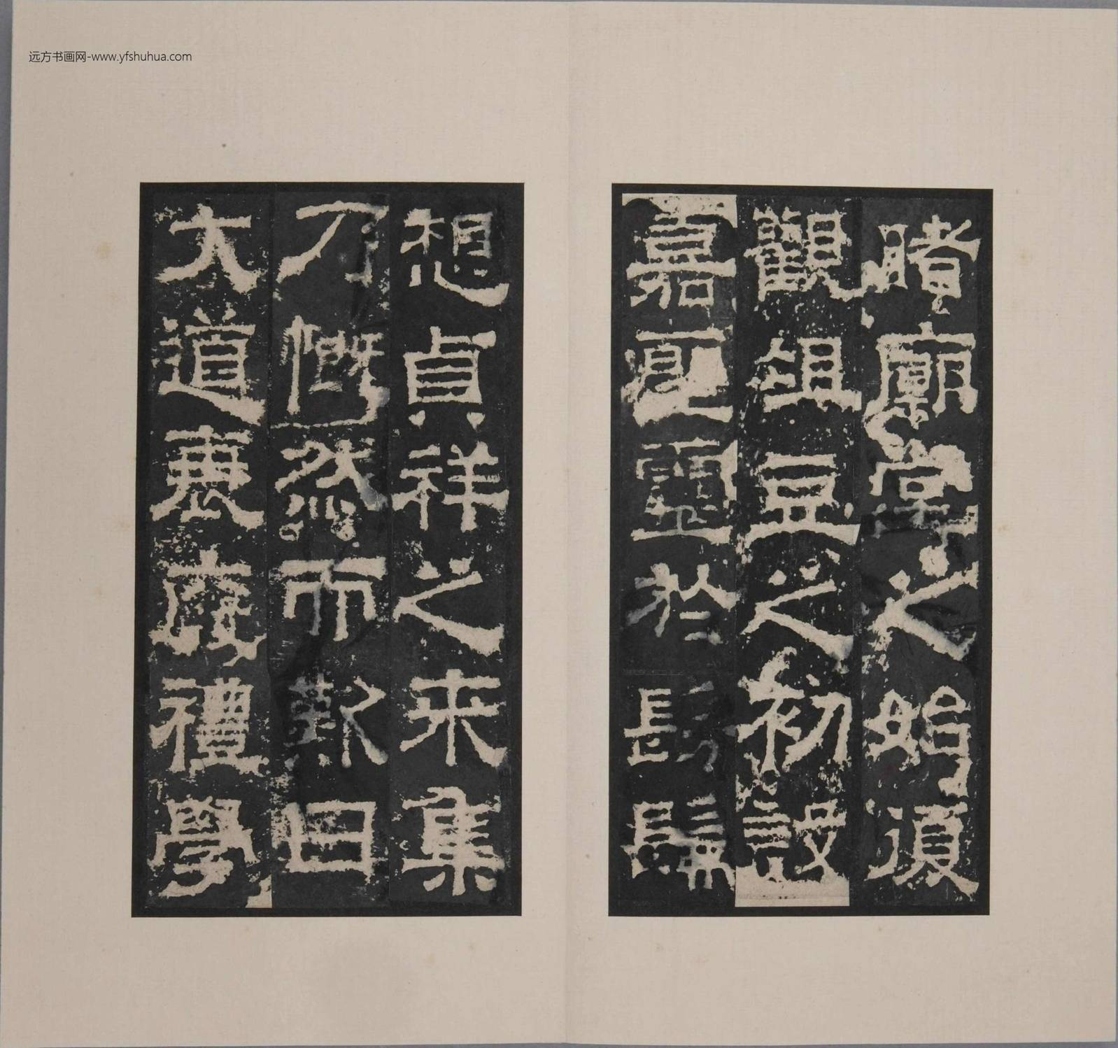 远方书画网-www.yfshuhua.com
睹廟堂之始復
觀俎豆之初設
嘉聖靈於髣髴
想貞祥之来集
乃慨然而歎曰
大道衰廢禮學